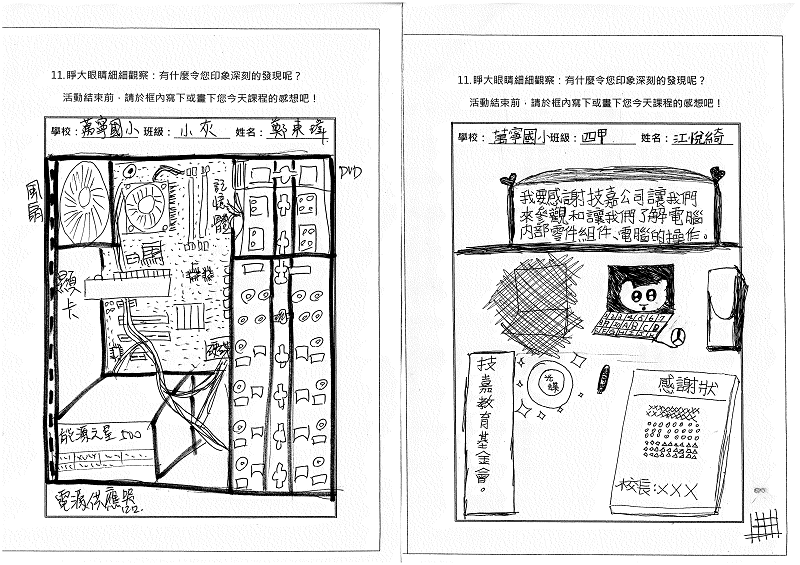 11.睜大眼睛細細觀察：有什麼令您印象深刻的發現呢？
活動結束前，請於框內寫下或畫下您今天課程的感想吧！
學校：萬寧國小 班級：小灰 姓名：鄭東瑋
DVD
風扇
記憶體
顯卡
能源之星 500
電源供應器
11.睜大眼睛細細觀察：有什麼令您印象深刻的發現呢？
活動結束前，請於框內寫下或畫下您今天課程的感想吧！
學校：萬寧國小 班級：四甲 姓名：江悅綺
我要感謝技嘉公司讓我們
來參觀和讓我們了解電腦
內部零件組件、電腦的操作。
技嘉教育基金會。
光碟
感謝狀
校長：XXX